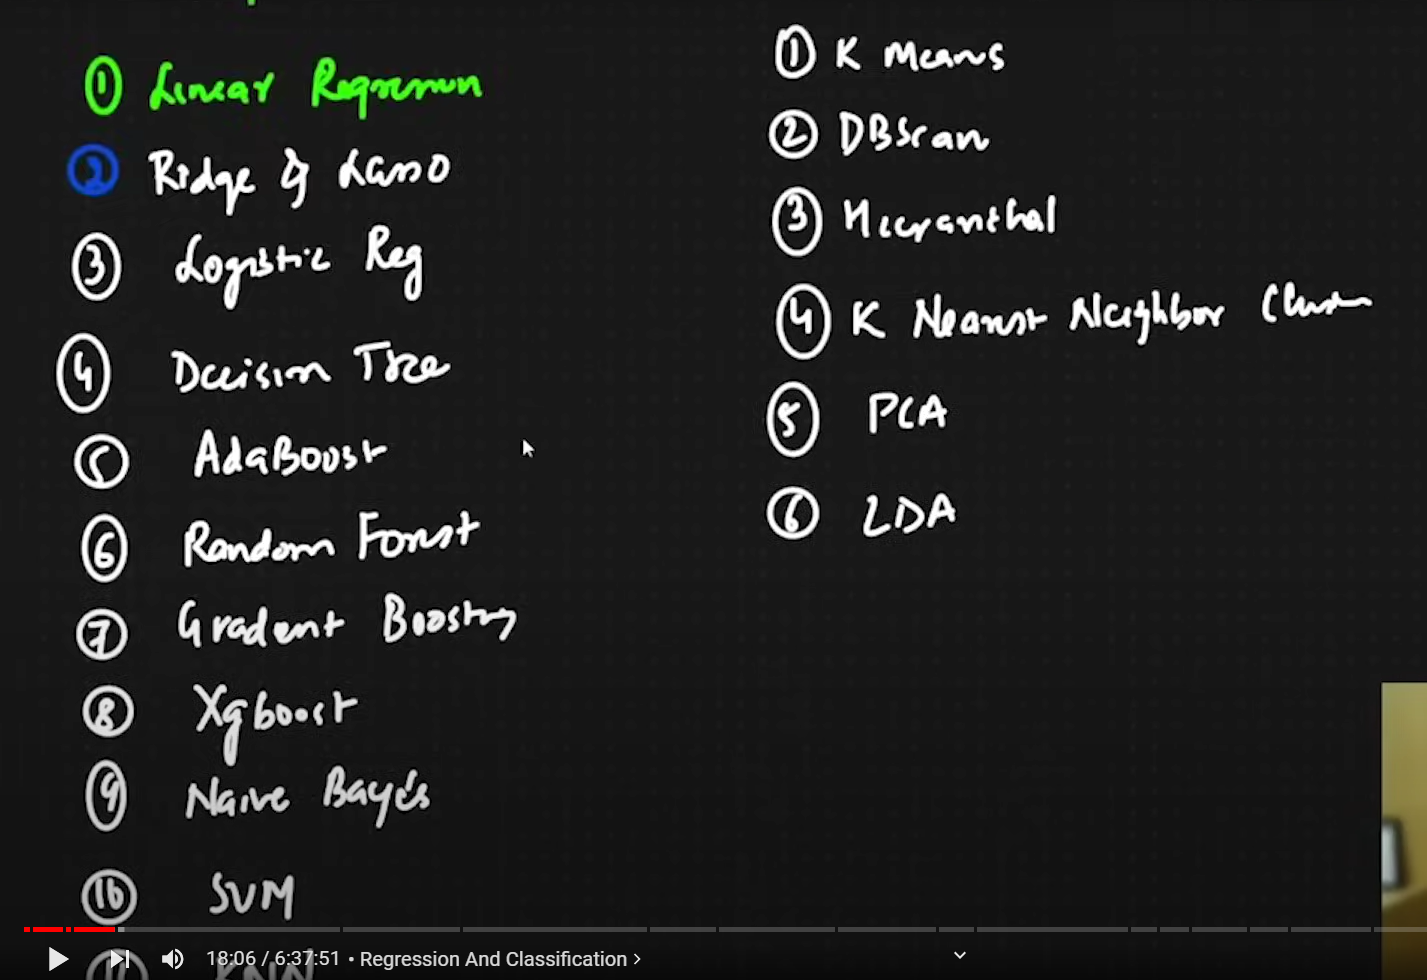 ① Linear Regression
② Ridge & Lasso
③ Logistic Reg
④ Decision Tree
⑤ AdaBoost
⑥ Random Forest
⑦ Gradient Boosting
⑧ Xgboost
⑨ Naive Baye's
⑩ SVM
⑪ KNN
① K Means
② DBScan
③
④ K Nearest Neighbor Cluster
⑤ PCA
⑥ LDA
18:06 / 6:37:51 • Regression And Classification >